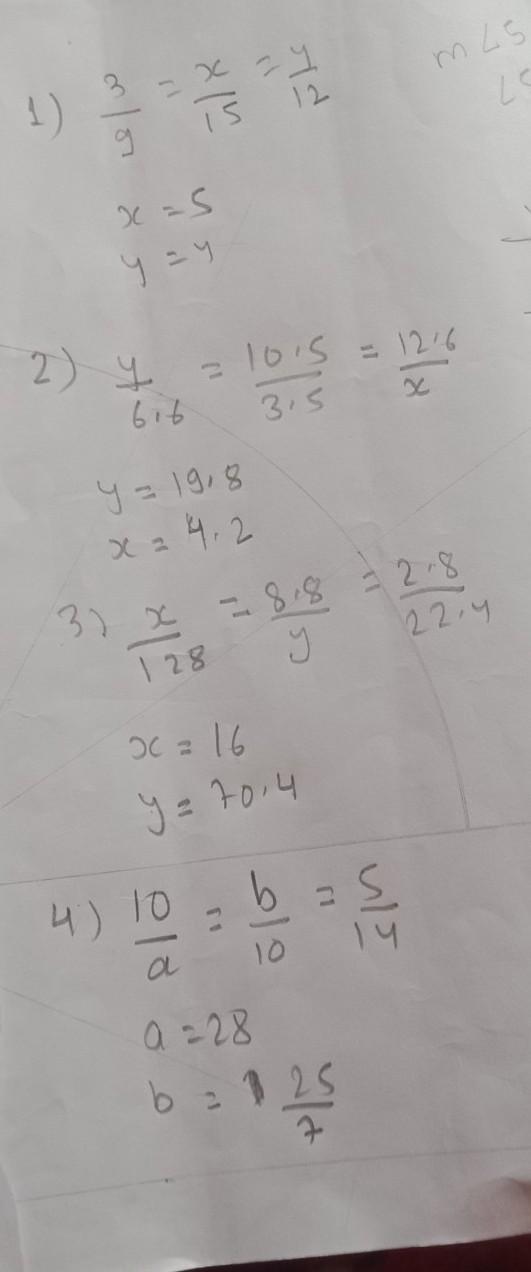 m∠S
1) 3/9 = x/15 = y/12
x = 5
y = 4
2) y/6.6 = 10.5/3.5 = 12.6/x
y = 19.8
x = 4.2
3) x/128 = 8.8/y = 2.8/22.4
x = 16
y = 70.4
4) 10/a = b/10 = 5/14
a = 28
b = 25/7